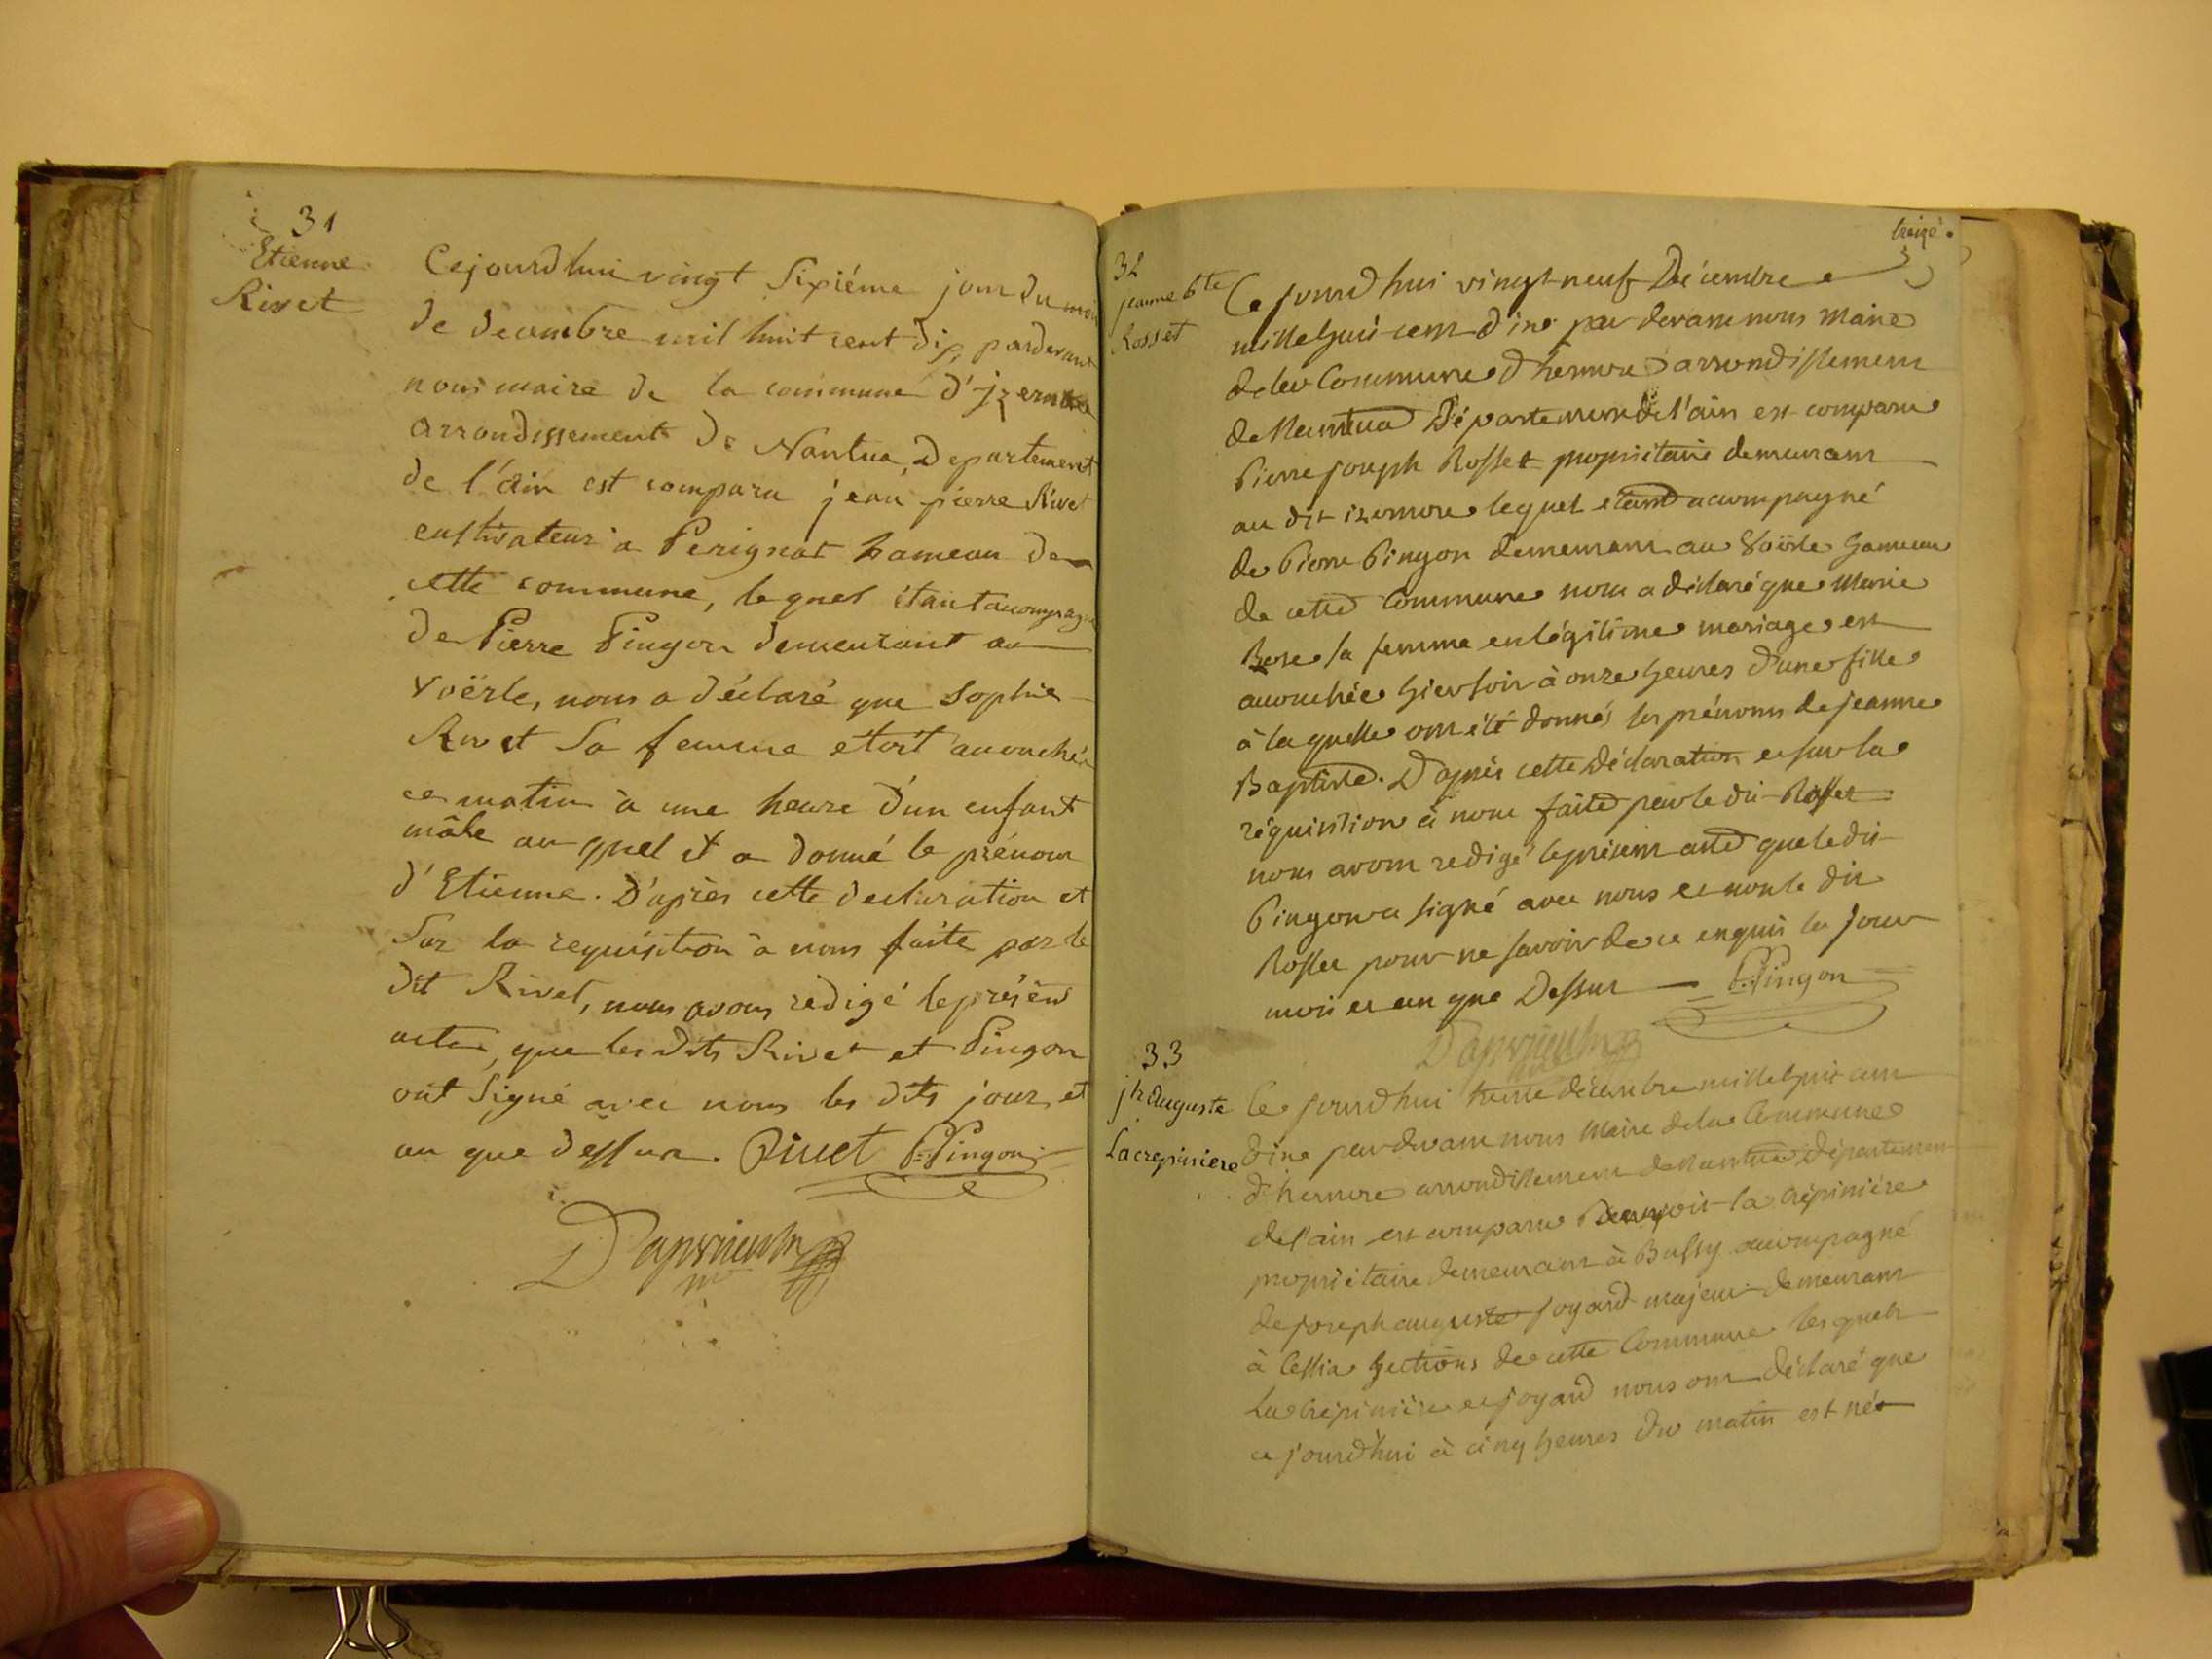 31
Etienne
Rivet
Cejourdhui vingt Sixiéme jour du mois
de decembre mil huit cent dix, pardevant
nous maire de la commune d'jzernore
arrondissement de Nantua, Departement
de l'ain est comparu jean pierre Rivet
cultivateur a Perignat hameau de
cette commune, lequel étant accompagné
de Pierre Pingon demeurant au
Voërle, nous a déclaré que Sophie
Rivet Sa femme etoit accouchée
ce matin à une heure d'un enfant
mâle au quel il a donné le prénom
d'Etienne. D'après cette declaration et
Sur la requisition à nous faite par le
dit Rivet, nous avons redigé le présent
acte, que les dits Rivet et Pingon
ont Signé avec nous les dits jour, et
an que dessus. Rivet P. Pingon
treize.
32
jeanne Bte
Rosset
Ce jourd'hui vingt-neuf Décembre
mille huit cent dixe par devant nous Maire
de la Commune d'hernore arrondissement
de Nantua Département de l'ain est comparu
Pierre joseph Rosset propriétaire demeurant
au dit izernore lequel étant acompagné
de Pierre Pingon demeurant au Voërle hameau
de cette Commune nous a déclaré que Marie
Rose sa femme en légitime mariage est
accouchée hier soir à onze heures d'une fille
à laquelle ont été donnés les prénoms de jeanne
Baptiste. D'après cette Déclaration et sur la
réquisition à nous faite par le dit Rosset
nous avons redigé le présent acte que le dit
Pingon a signé avec nous et non le dit
Rosset pour ne savoir de ce enquis les jour
mois et an que Dessus P. Pingon
33
jh auguste
Lacrepiniere
Ce jourd'hui trente décembre mille huit cent
dixe par devant nous Maire de la Commune
d'hernore arrondissement de Nantua département
de l'ain est comparu la crépinière
propriétaire demeurant à Bussy accompagné
de joseph auguste joyard majeur demeurant
à Cessia Sections de cette Commune lesquels
La crépinière et joyard nous ont déclaré que
ce jourd'hui à cinq heures du matin est né